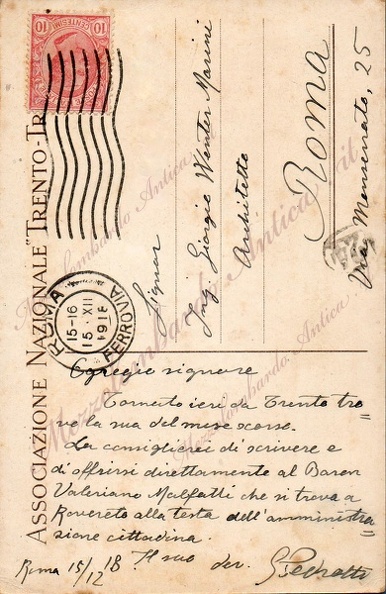 ASSOCIAZIONE NAZIONALE "TRENTO-TR
CENTESIMI
10
10
ROMA
15-16
15 · XII
1918
FERROVIA
Signor
Ing. Giorgio Wenter Marini
Architetto
Roma
Via Monserrato, 25
Egregio signore
Tornato ieri da Trento tro=
vo la sua del mese scorso.
La consiglierei di scrivere e
di offrirsi direttamente al Baron
Valeriano Malfatti che si trova a
Rovereto alla testa dell'amministra=
zione cittadina.
Roma 15/12 18 Il suo dev. GPedrotti
Mezzolombardo Antica